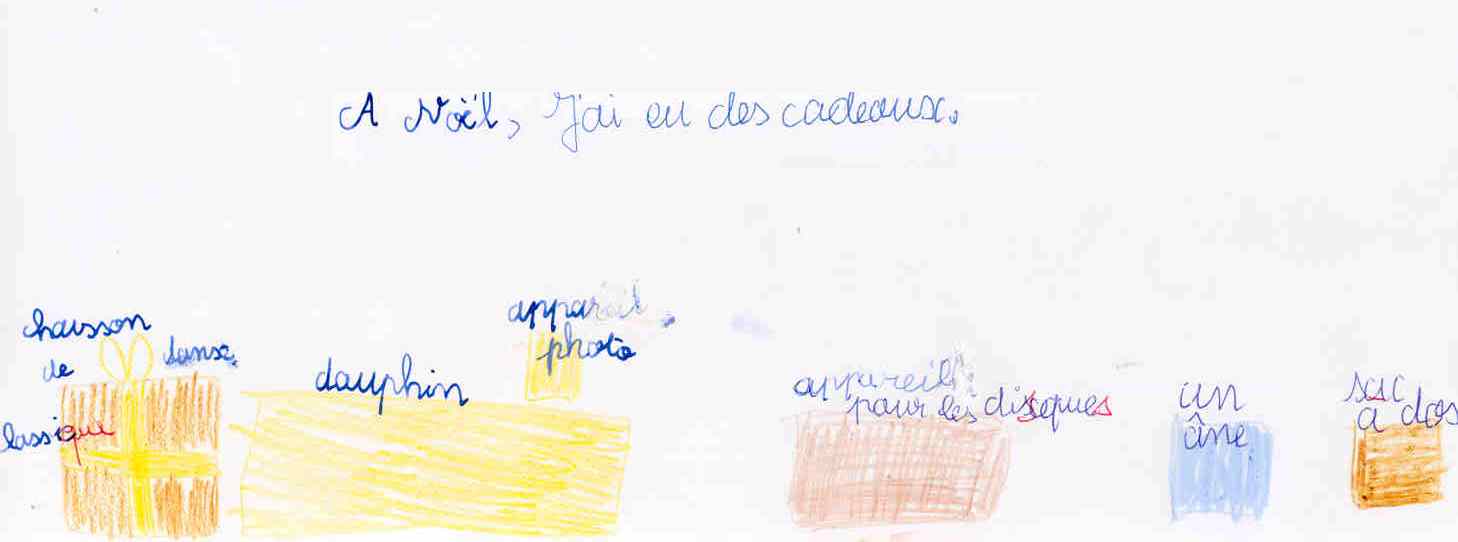 A Noël, J'ai eu des cadeaux.
chausson
de danse
classique
dauphin
appareil
photo
appareil
pour les disques
un
âne
sac
a dos